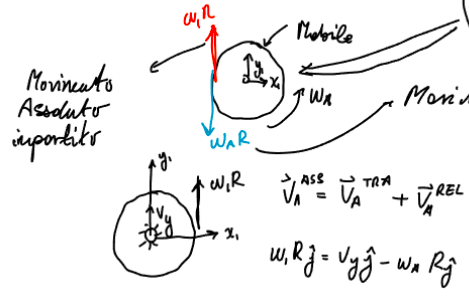 ω₁R
Mobile
Movimento
Assoluto
impartito
y₁
x₁
ωₐ
ωₐR
Movi
y₁
ω₁R
Vy
x₁
V⃗ₐ^ASS = V⃗ₐ^TRA + V⃗ₐ^REL
ω₁Rĵ = Vyĵ - ωₐRĵ